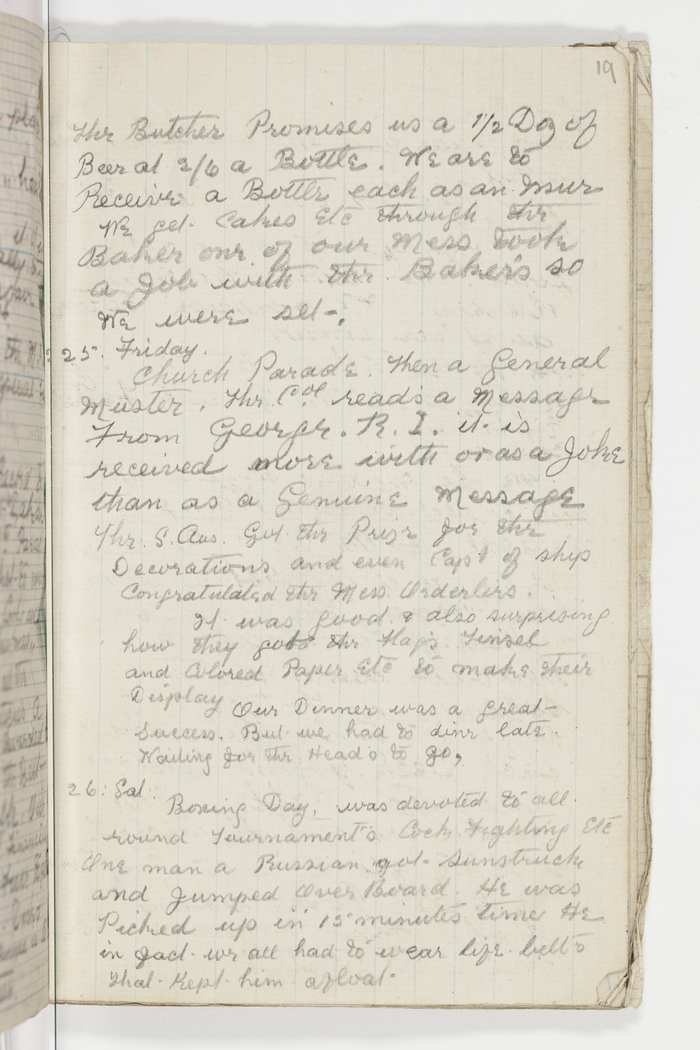 19
The Butcher Promises us a 1/2 Doz of
Beer at 2/6 a Bottle. We are to
Receive a Bottle each as an
We get. Cakes Etc through the
Baker one of our Mess took
a Job with the Baker's so
We were set.
25. Friday.
Church Parade. Then a General
Muster. The Col reads a Message
From George. R. I. it is
received more with or as a Joke
than as a Genuine Message
The S. Aus. Got the Prize for the
Decorations and even Capt of ship
Congratulated the Mess Orderlies.
It was good & also surprising
how they got the Flags Tinsel
and Colored Paper Etc to make their
Display Our Dinner was a great
Success. But we had to dine late.
Waiting for the Head's to go,
26. Sat.
Boxing Day, was devoted to all
round Tournament's Cock Fighting Etc
One man a Russian got Sunstruck
and Jumped Over Board. He was
Picked up in 15 minutes time He
in fact we all had to wear life belt's
that Kept him afloat